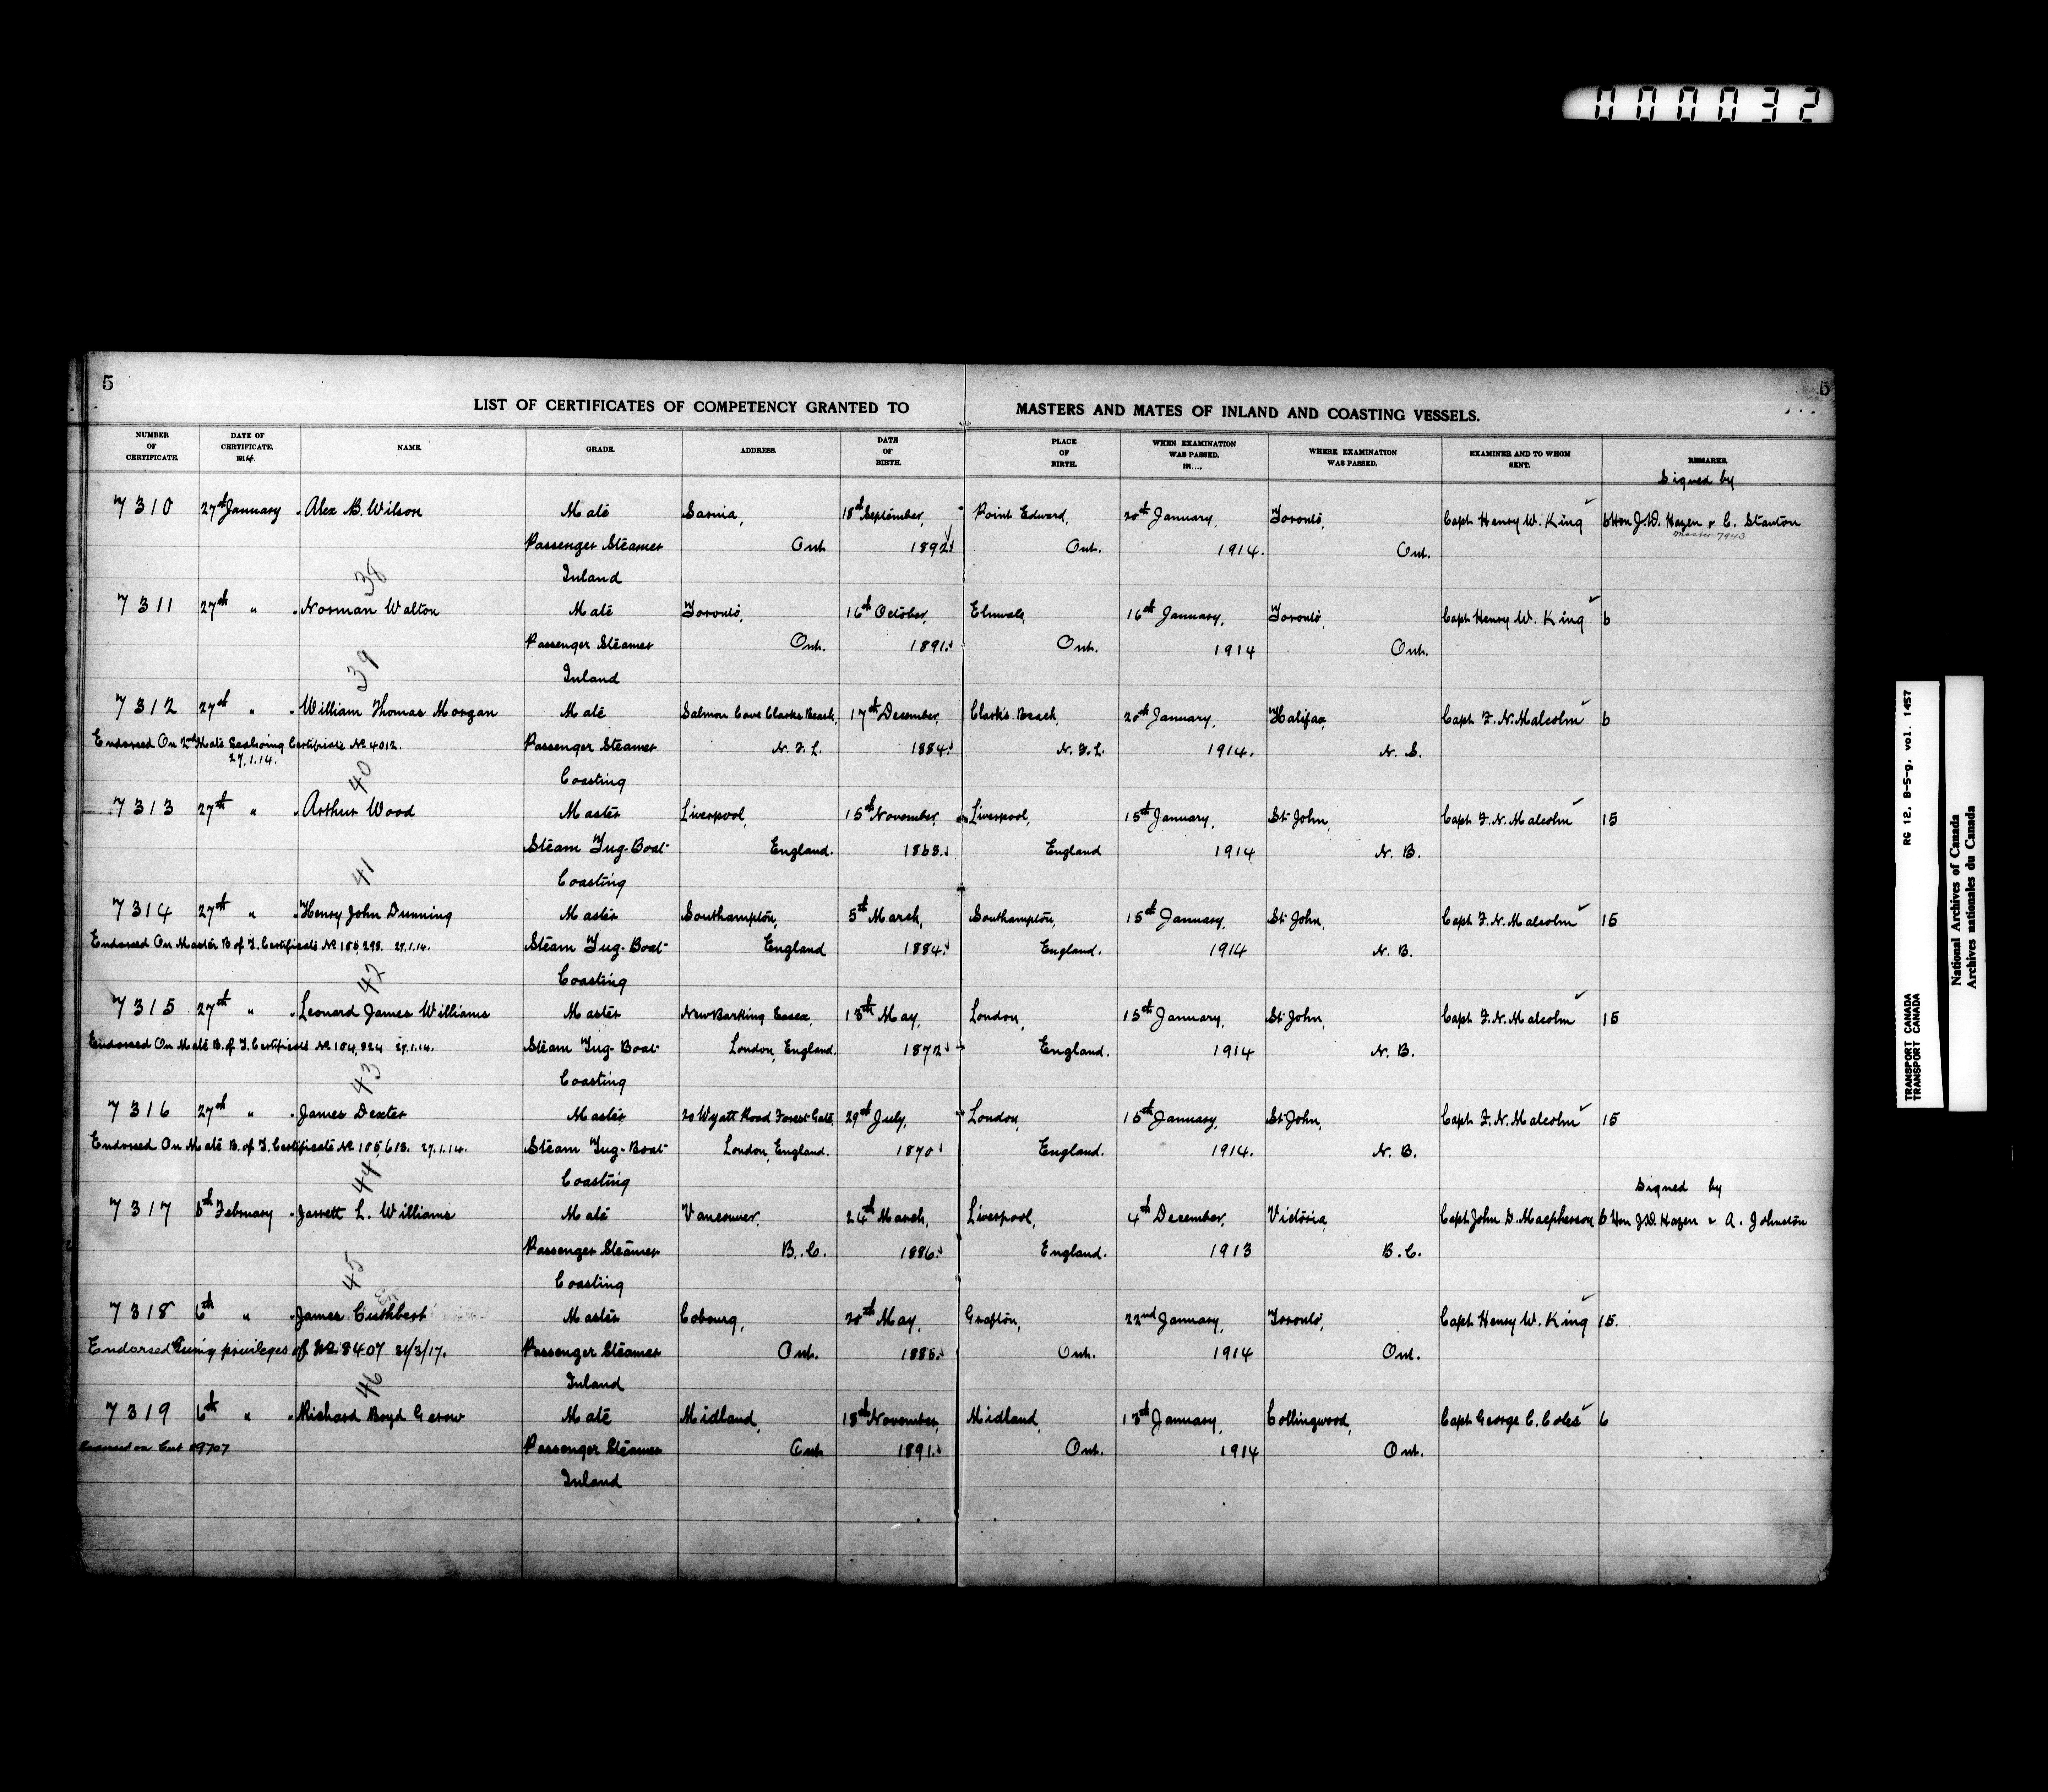 000032
5
5
LIST OF CERTIFICATES OF COMPETENCY GRANTED TO MASTERS AND MATES OF INLAND AND COASTING VESSELS.
NUMBER OF CERTIFICATE. DATE OF CERTIFICATE. 1914. NAME. GRADE. ADDRESS. DATE OF BIRTH. PLACE OF BIRTH. WHEN EXAMINATION WAS PASSED. 191..... WHERE EXAMINATION WAS PASSED. EXAMINER AND TO WHOM SENT. REMARKS.
Signed by
7310 27th January Alex B. Wilson Mate Sarnia, 18th September, Point Edward, 20th January, Toronto, Capt Henry W. King 6 Hon J.D. Hazen & C. Stanton
Master 7943
Passenger Steamer Ont 1892 Ont. 1914. Ont.
38 Inland
7311 27th " Norman Walton Mate Toronto, 16th October, Elmvale, 16th January, Toronto, Capt Henry W. King 6
Passenger Steamer Ont. 1891. Ont. 1914 Ont.
39 Inland
7312 27th " William Thomas Morgan Mate Salmon Cove Clarks Beach, 17th December, Clark's Beach, 20th January, Halifax, Capt F. N. Malcolm 6
Endorsed On 2nd Mate Seagoing Certificate No 4012. Passenger Steamer N. F. L. 1884. N. F. L. 1914. N. S.
27.1.14.
40 Coasting
7313 27th " Arthur Wood Master Liverpool, 15th November, Liverpool, 15th January, St John, Capt F. N. Malcolm 15
Steam Tug-Boat England. 1863. England 1914 N. B.
41 Coasting
7314 27th " Henry John Dunning Master Southampton, 5th March, Southampton, 15th January, St John, Capt F. N. Malcolm 15
Endorsed On Master B of T. Certificate No 105,298. 27.1.14. Steam Tug-Boat England 1884. England. 1914 N. B.
42 Coasting
7315 27th " Leonard James Williams Master New Barking Essex, 18th May, London, 15th January, St John, Capt F. N. Malcolm 15
Endorsed On Mate B. of T. Certificate No 104,824 27.1.14. Steam Tug-Boat London, England. 1872 England. 1914 N. B.
43 Coasting
7316 27th " James Dexter Master 20 Wyatt Road Forest Gate, 29th July, London, 15th January, St John, Capt F. N. Malcolm 15
Endorsed On Mate B. of T. Certificate No 105,613. 27.1.14. Steam Tug-Boat London, England. 1870 England. 1914. N. B.
44 Coasting
Signed by
7317 6th February Jarrett L. Williams Mate Vancouver, 24th March, Liverpool, 4th December, Victoria, Capt John D. Macpherson 6 Hon J.D. Hazen & A. Johnston
Passenger Steamer B. C. 1886. England. 1913 B. C.
45 Coasting
7318 6th " James Cuthbert Master Cobourg, 20th May, Grafton, 22nd January, Toronto, Capt Henry W. King 15.
Endorsed Giving privileges of No 8407 21/3/17. Passenger Steamer Ont. 1885. Ont. 1914 Ont.
46 Inland
7319 6th " Richard Boyd Gerow Mate Midland, 18th November, Midland, 13th January, Collingwood, Capt George C. Coles 6
Endorsed on Cert 09707 Passenger Steamer Ont. 1891. Ont. 1914 Ont.
Inland
TRANSPORT CANADA RG 12, B-5-g, vol. 1457
TRANSPORT CANADA
National Archives of Canada
Archives nationales du Canada